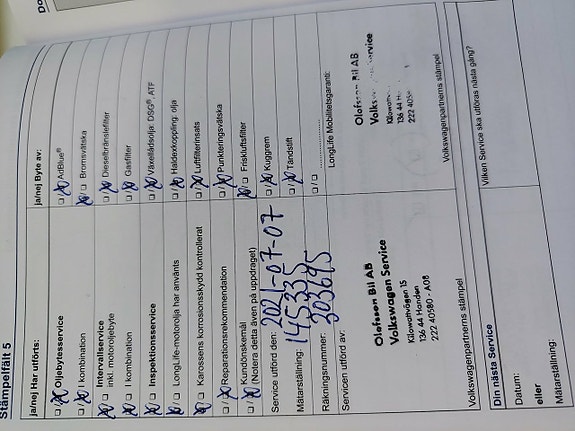 Stämpelfält 5
ja/nej Har utförts:
Oljebytesservice
I kombination
Intervallservice
inkl. motoroljebyte
I kombination
Inspektionsservice
LongLife-motorolja har använts
Karossens korrosionsskydd kontrollerat
Reparationsrekommendation
Kundönskemål
(Notera detta även på uppdraget)
Service utförd den: 2021-07-07
Mätarställning: 145335
Räkningsnummer: 303695
Servicen utförd av:
Olofsson Bil AB
Volkswagen Service
Kilowattvägen 15
136 44 Handen
222 40580 - A08
Volkswagenpartnerns stämpel
ja/nej Byte av:
AdBlue®
Bromsvätska
Dieselbränslefilter
Gasfilter
Växellådsolja: DSG® ATF
Haldexkoppling: olja
Luftfilterinsats
Punkteringsvätska
Friskluftsfilter
Kuggrem
Tändstift
LongLife Mobilitetsgaranti:
Olofsson Bil AB
Service
136 44
Volkswagenpartnerns stämpel
Din nästa Service
Datum:
eller
Mätarställning:
Vilken Service ska utföras nästa gång?